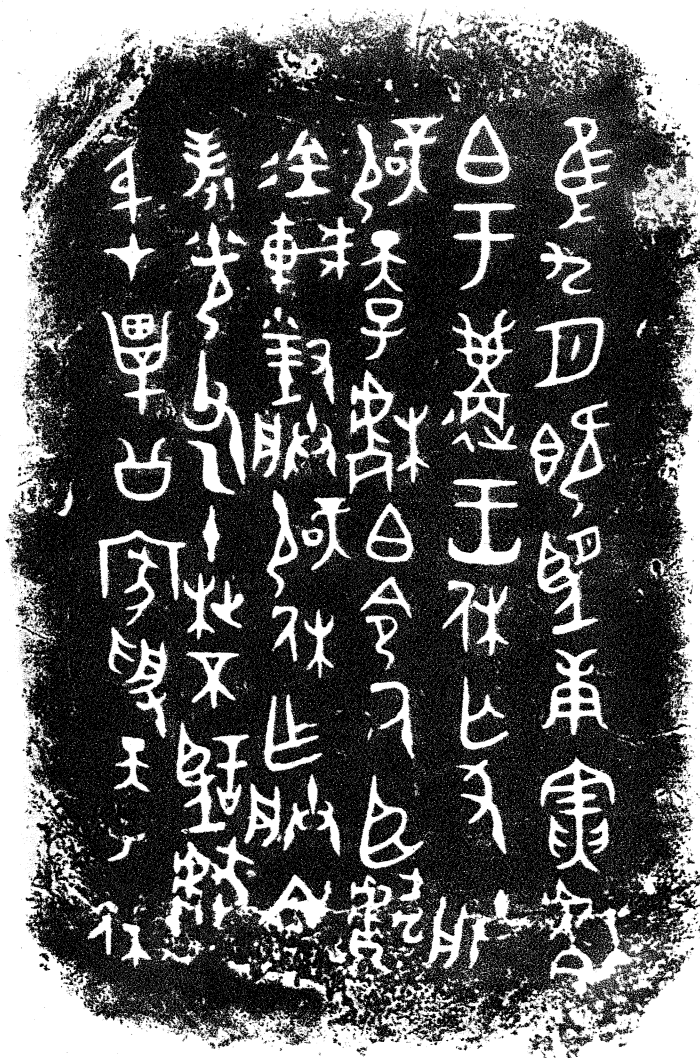 隹九月既望庚寅楷
白于遘王休亡尤朕
辟天子楷白令氒臣獻
金車對朕辟休乍朕文
考光父乙十枻不忘獻
身才畢公家受天子休